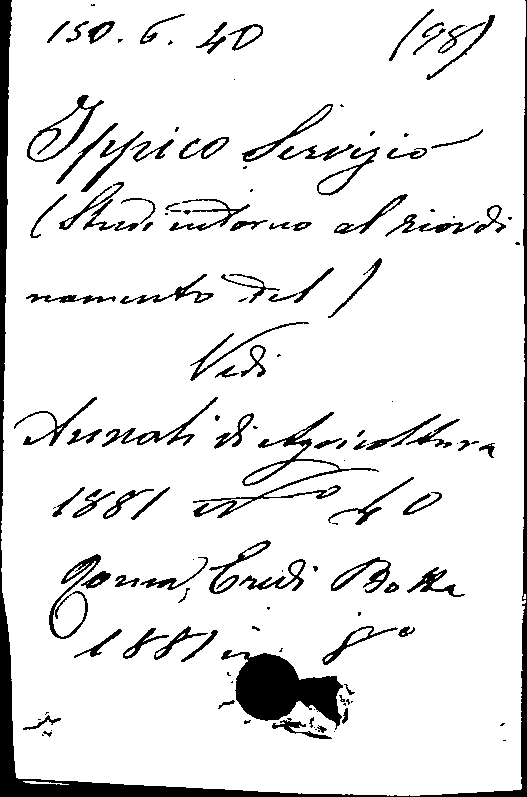 150. 6. 40 (98)
Ippico Servizio
(Studi intorno al riordi
namento del)
Vedi
Annali di Agricoltura
1881 N° 40
Roma, Eredi Botta
1881 in 8°